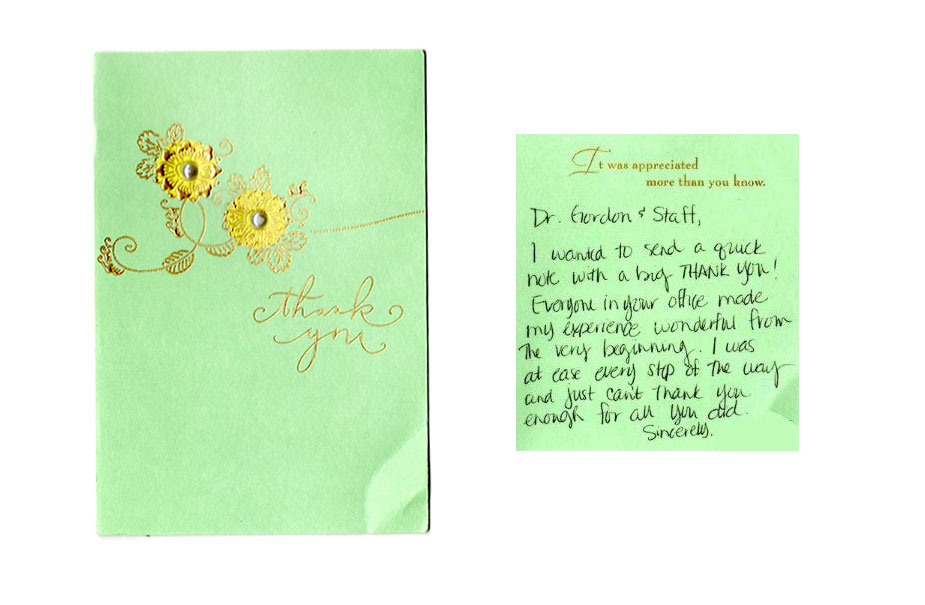 thank
you
It was appreciated
more than you know.
Dr. Gordon & Staff,
I wanted to send a quick
note with a big THANK YOU!
Everyone in your office made
my experience wonderful from
the very beginning. I was
at ease every step of the way
and just can't thank you
enough for all you did.
Sincerely.